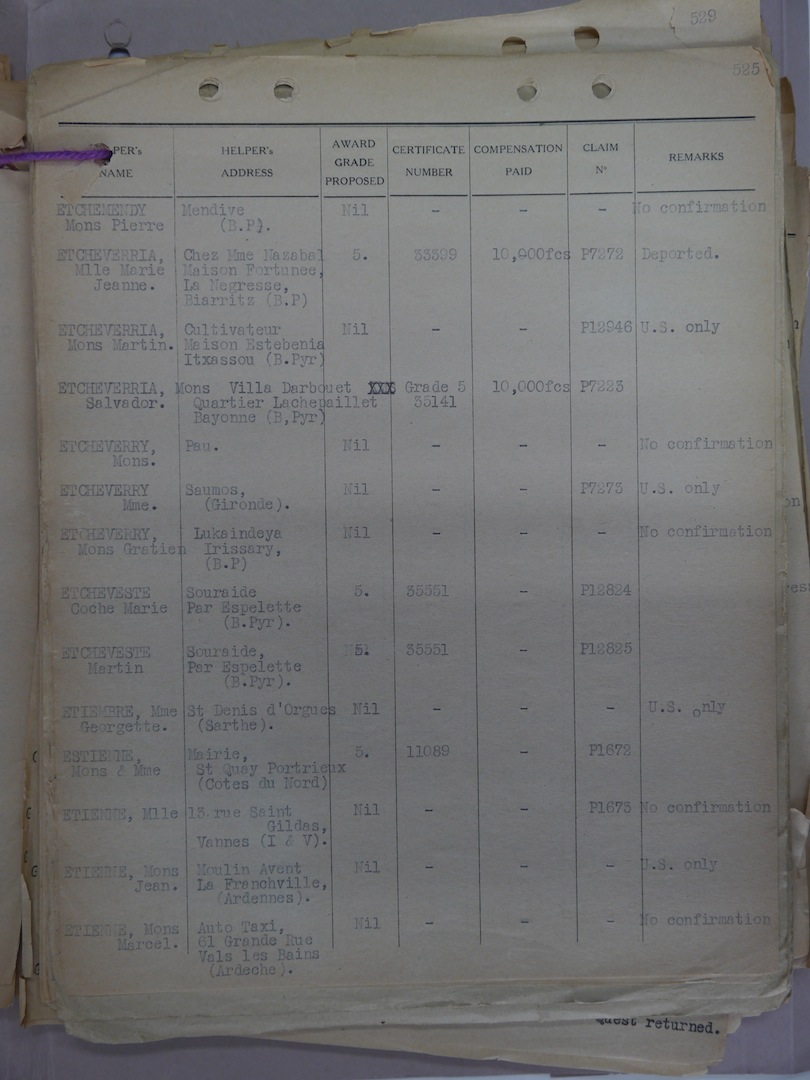 529
525
PER's NAME HELPER's ADDRESS AWARD GRADE PROPOSED CERTIFICATE NUMBER COMPENSATION PAID CLAIM No REMARKS
ETCHEMENDY Mendive Nil - - - No confirmation
Mons Pierre (B.P).
ETCHEVERRIA, Chez Mme Nazabal 5. 33399 10,000fcs P7272 Deported.
Mlle Marie Maison Fortunee,
Jeanne. La Negresse,
Biarritz (B.P)
ETCHEVERRIA, Cultivateur Nil - - P12946 U.S. only
Mons Martin. Maison Estebenia
Itxassou (B.Pyr)
ETCHEVERRIA, Mons Villa Darbouet XXX Grade 5 10,000fcs P7223
Salvador. Quartier Lachepaillet 35141
Bayonne (B,Pyr)
ETCHEVERRY, Pau. Nil - - - No confirmation
Mons.
ETCHEVERRY Saumos, Nil - - P7273 U.S. only
Mme. (Gironde).
ETCHEVERRY, Lukaindeya Nil - - - No confirmation
Mons Gratien Irissary,
(B.P)
ETCHEVESTE Souraide 5. 35551 - P12824
Coche Marie Par Espelette
(B.Pyr).
ETCHEVESTE Souraide, 5. 35551 - P12825
Martin Par Espelette
(B.Pyr).
ETIEMBRE, Mme St Denis d'Orgues Nil - - - U.S. only
Georgette. (Sarthe).
ESTIENNE, Mairie, 5. 11089 - P1672
Mons & Mme St Quay Portrieux
(Cotes du Nord)
ETIENNE, Mlle 13. rue Saint Nil - - P1673 No confirmation
Gildas,
Vannes (I & V).
ETIENNE, Mons Moulin Avent Nil - - - U.S. only
Jean. La Franchville,
(Ardennes).
ETIENNE, Mons Auto Taxi, Nil - - - No confirmation
Marcel. 61 Grande Rue
Vals les Bains
(Ardeche).
Quest returned.